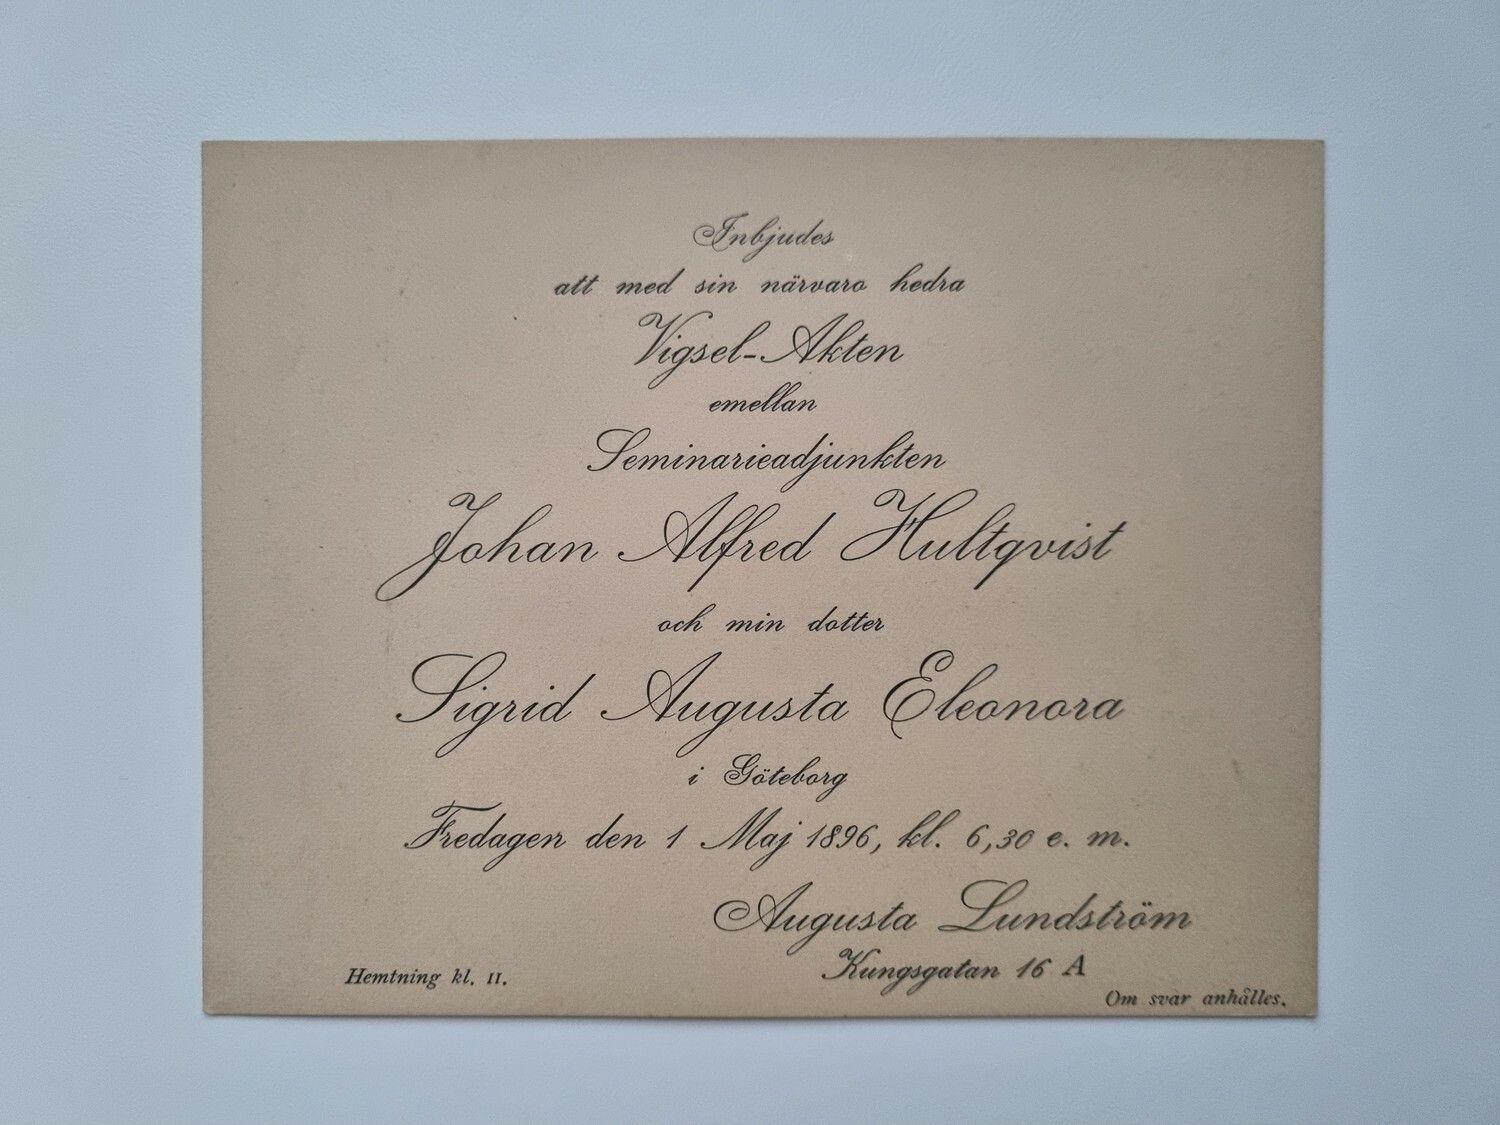 Inbjudes
att med sin närvaro hedra
Vigsel-Akten
emellan
Seminarieadjunkten
Johan Alfred Hultqvist
och min dotter
Sigrid Augusta Eleonora
i Göteborg
Fredagen den 1 Maj 1896, kl. 6,30 e. m.
Augusta Lundström
Kungsgatan 16 A
Hemtning kl. 11.
Om svar anhålles.